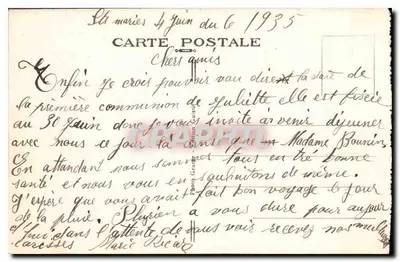 Stes maries 4 Juin du 6 1935
CARTE POSTALE
Chers amis
Enfin Je crois pouvoir vou dire la date de
la première communion de Juliette elle est fixée
au 30 Juin donc je vous invite à venir dejeuner
avec nous ce jour la ainsi que Madame
En attendant nous sommes tous en tre bonne
santé et nous vous en souhaitons de même.
J'espère que vous avait fait bon voyage le jour
de la pluie. a vous dire pour aujour
d'hui dans l'attente de vous voir recevez nos meilleures
caresses Marie